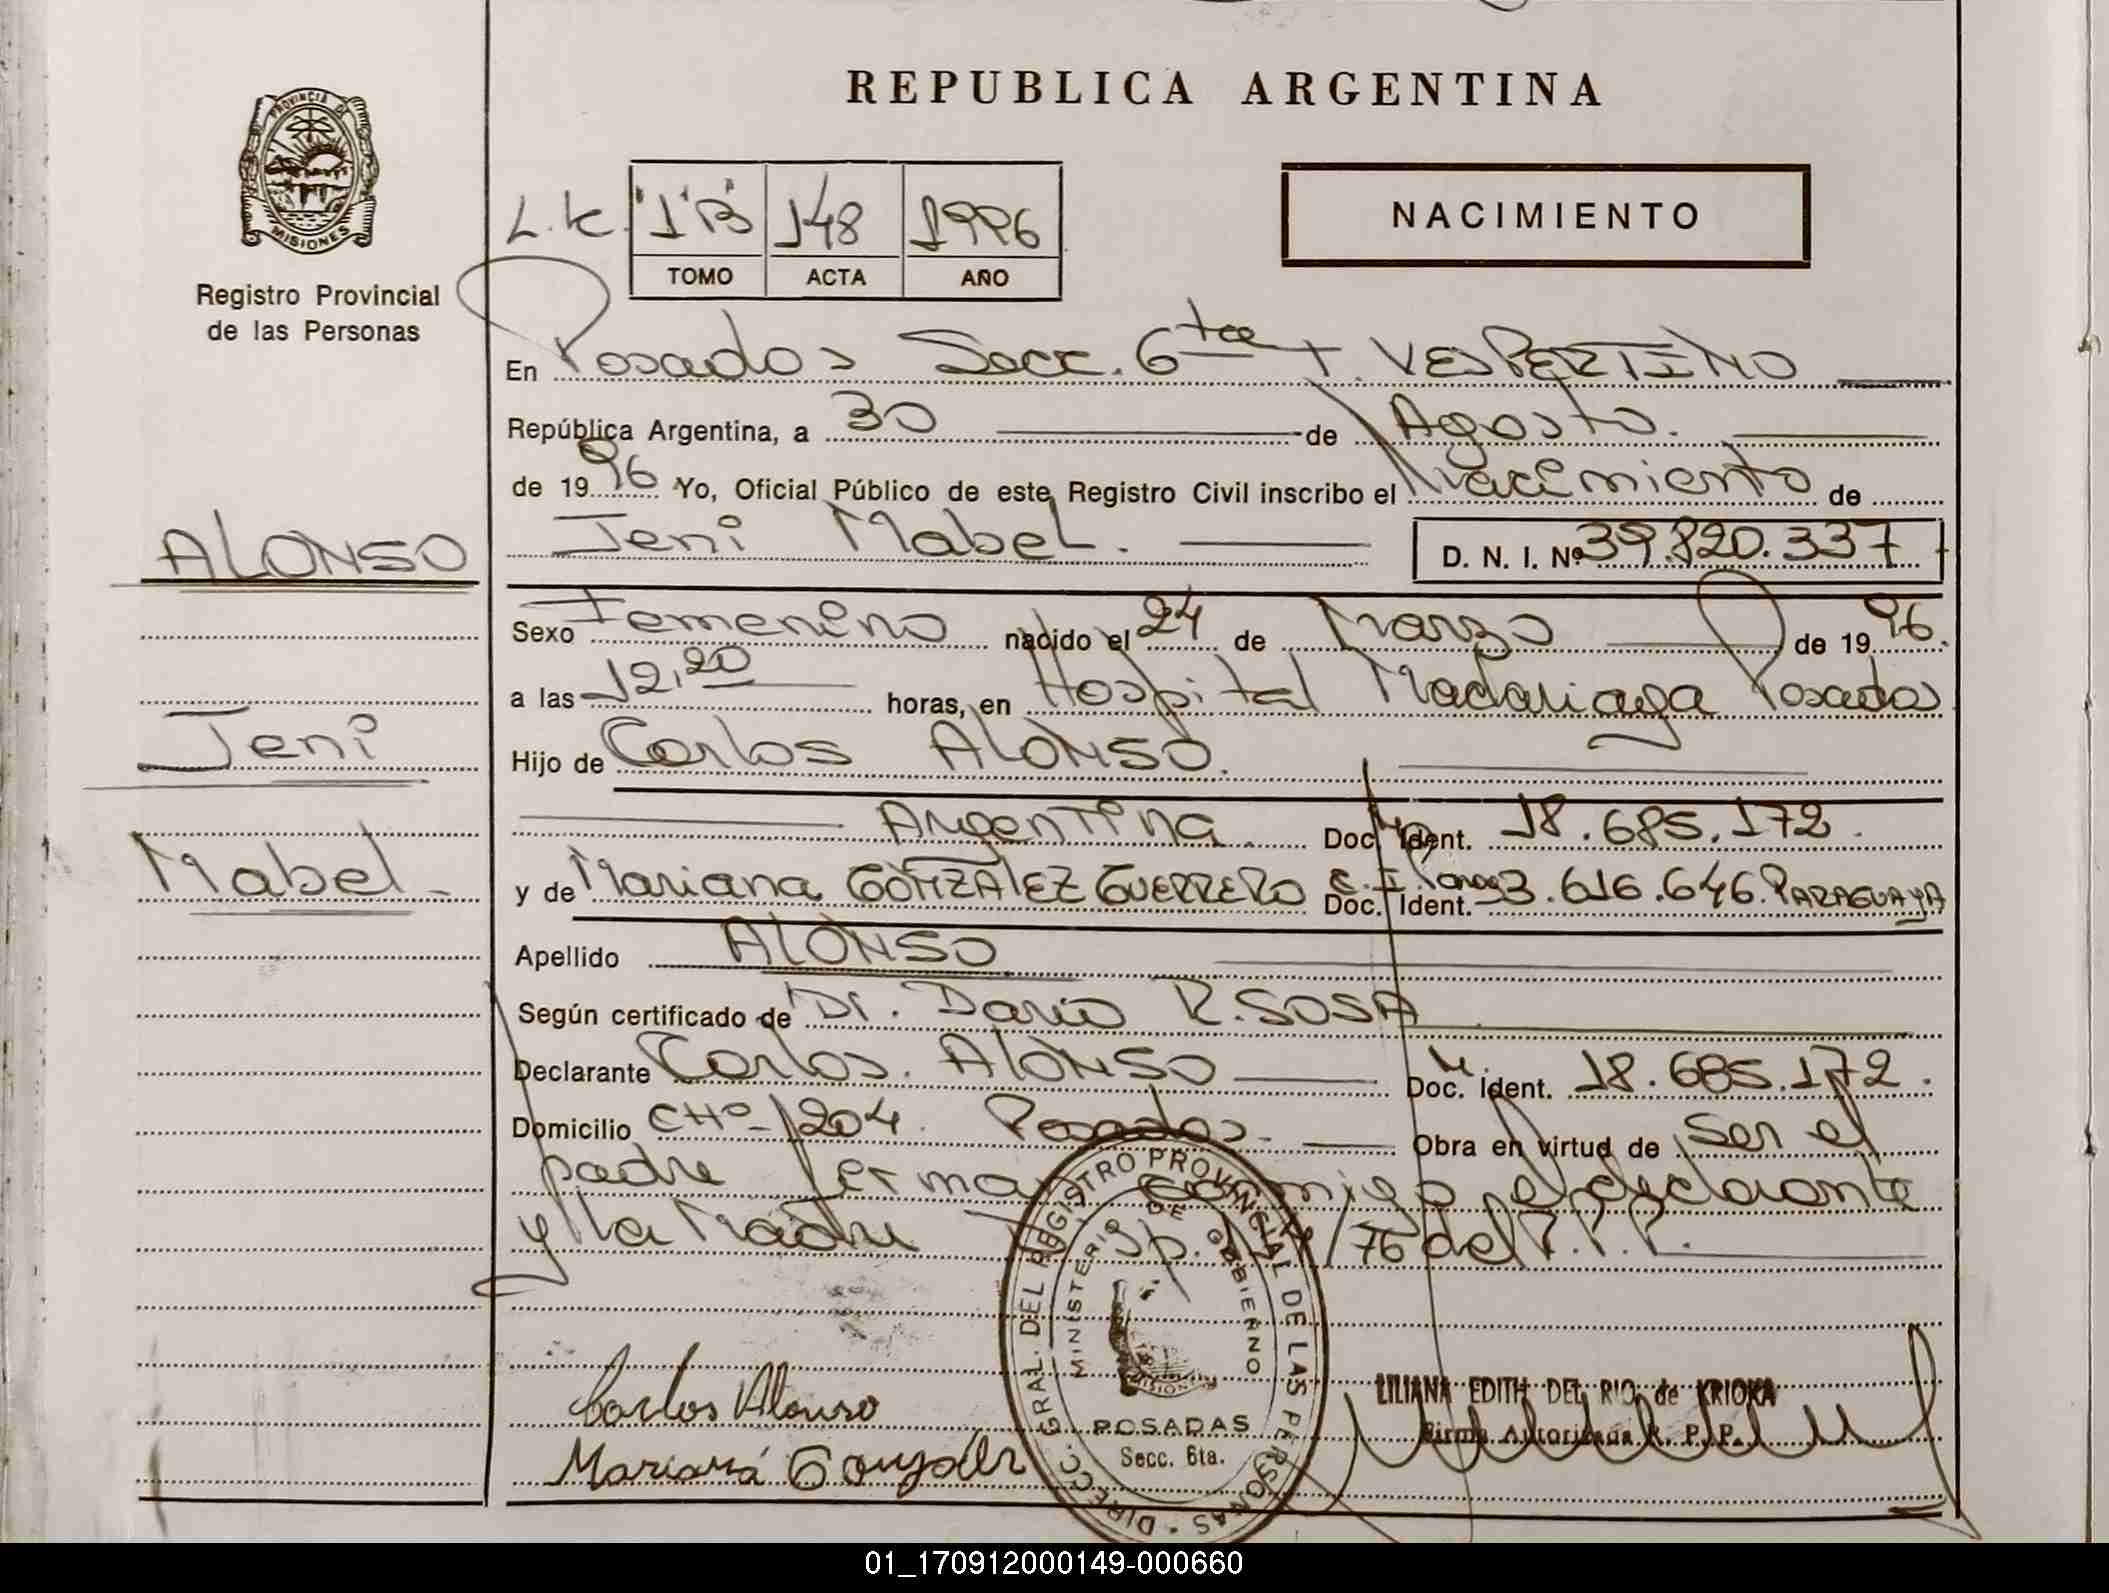 REPUBLICA ARGENTINA
PROVINCIA DE
MISIONES
Registro Provincial
de las Personas
L.K. "1"B 148 1996
TOMO ACTA AÑO
NACIMIENTO
En Posadas Secc. 6ta T. VESPERTINO
República Argentina, a 30 de Agosto.
de 1996 Yo, Oficial Público de este Registro Civil inscribo el Nacimiento de
Jeni Mabel. D. N. I. Nº 39.820.337
ALONSO
Jeni
Mabel
Sexo Femenino nacido el 24 de Marzo de 1996.
a las 12,20 horas, en Hospital Madariaga Posadas
Hijo de Carlos ALONSO.
Argentina Doc. Ident. 18.685.172.
y de Mariana GONZALEZ GUERRERO C.I. Doc. Ident. 3.616.646. PARAGUAYA
Apellido ALONSO
Según certificado de Dr. Dario R. SOSA
Declarante Carlos. ALONSO Doc. Ident. 18.685.172.
Domicilio CHº 204. Posadas. Obra en virtud de Ser el
padre Ferma conmigo el declarante
y la Madre /76 del R.P.P.
DIRECC. GRAL. DEL REGISTRO PROVINCIAL DE LAS PERSONAS
MINISTERIO DE GOBIERNO
MISIONES
POSADAS
Secc. 6ta.
Carlos Alonso
Mariana Gonzalez
LILIANA EDITH DEL RIO de KRIOKA
Firma Autorizada R. P. P.
01_170912000149-000660